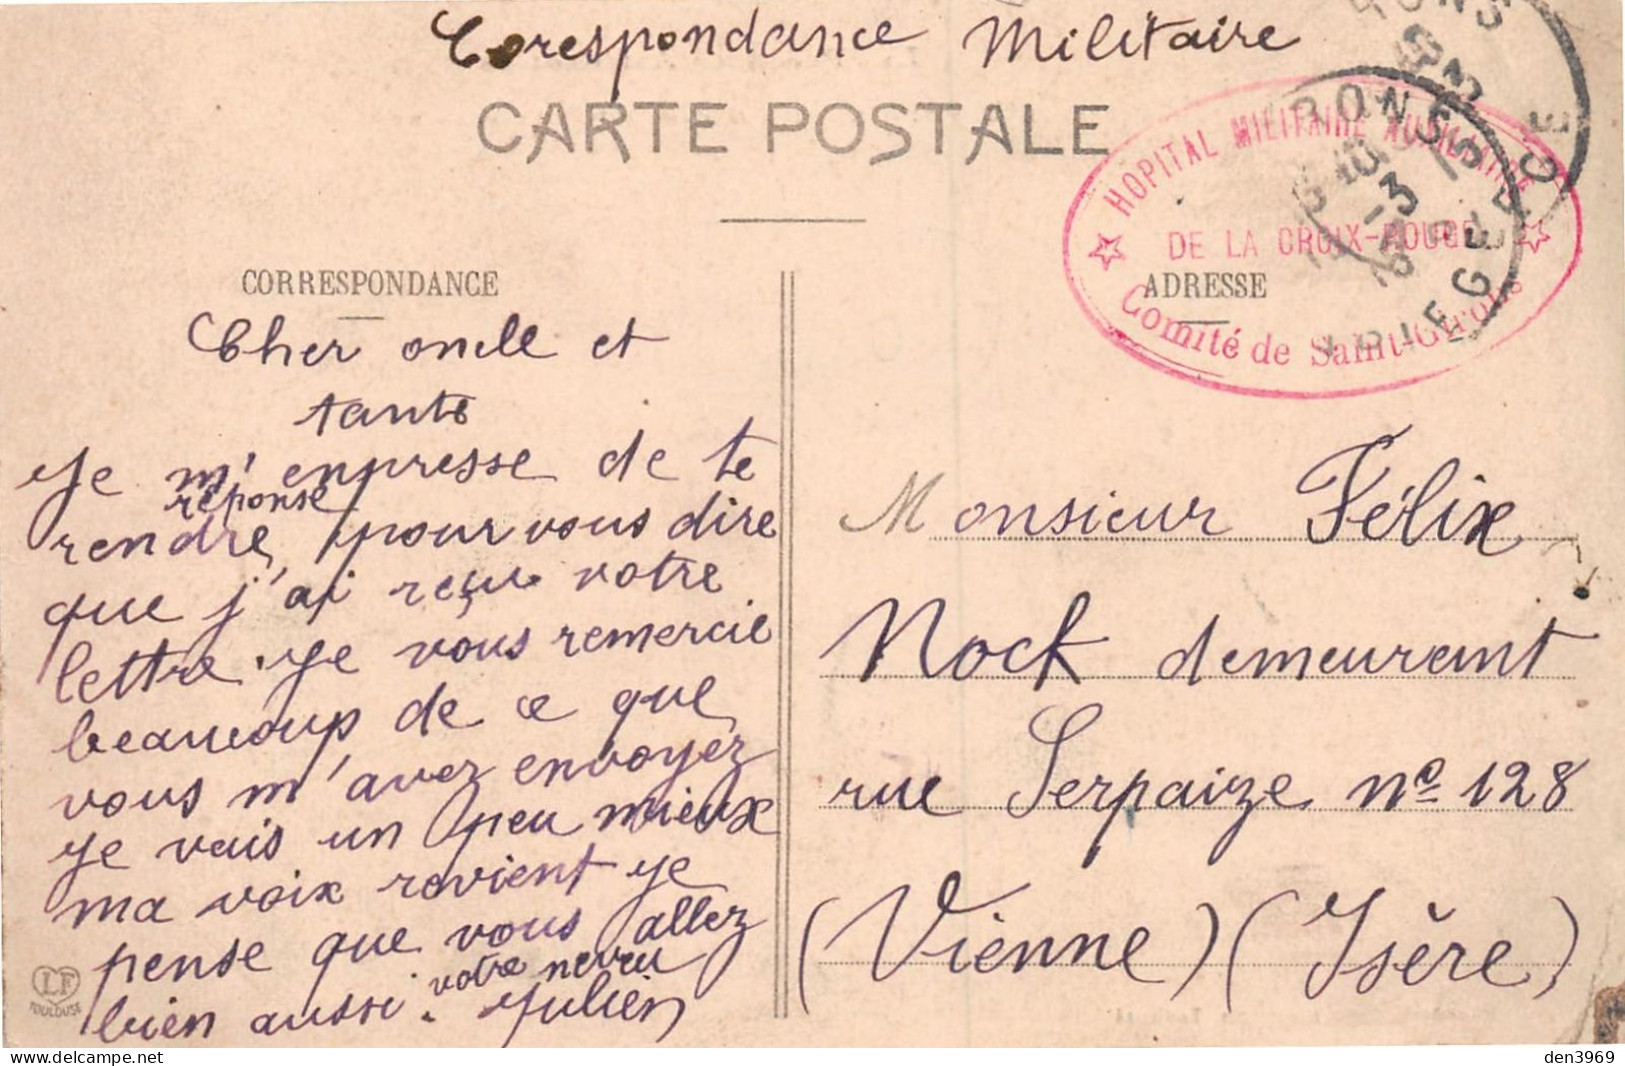 Corespondance Militaire
CARTE POSTALE
HOPITAL MILITAIRE AUXILIAIRE
DE LA CROIX-ROUGE
Comité de Saint-Girons
CORRESPONDANCE
ADRESSE
Cher oncle et
tante
Je m'enpresse de te
rendre réponse pour vous dire
que j'ai reçu votre
lettre. Je vous remercie
beaucoup de ce que
vous m'avez envoyez
je vais un peu mieux
ma voix rovient je
pense que vous allez
bien aussi. votre neveu
Julien
Monsieur Félix
Nock demeurent
rue Serpaize nº 128
(Vienne) (Isère)
LF
TOULOUSE
den3969